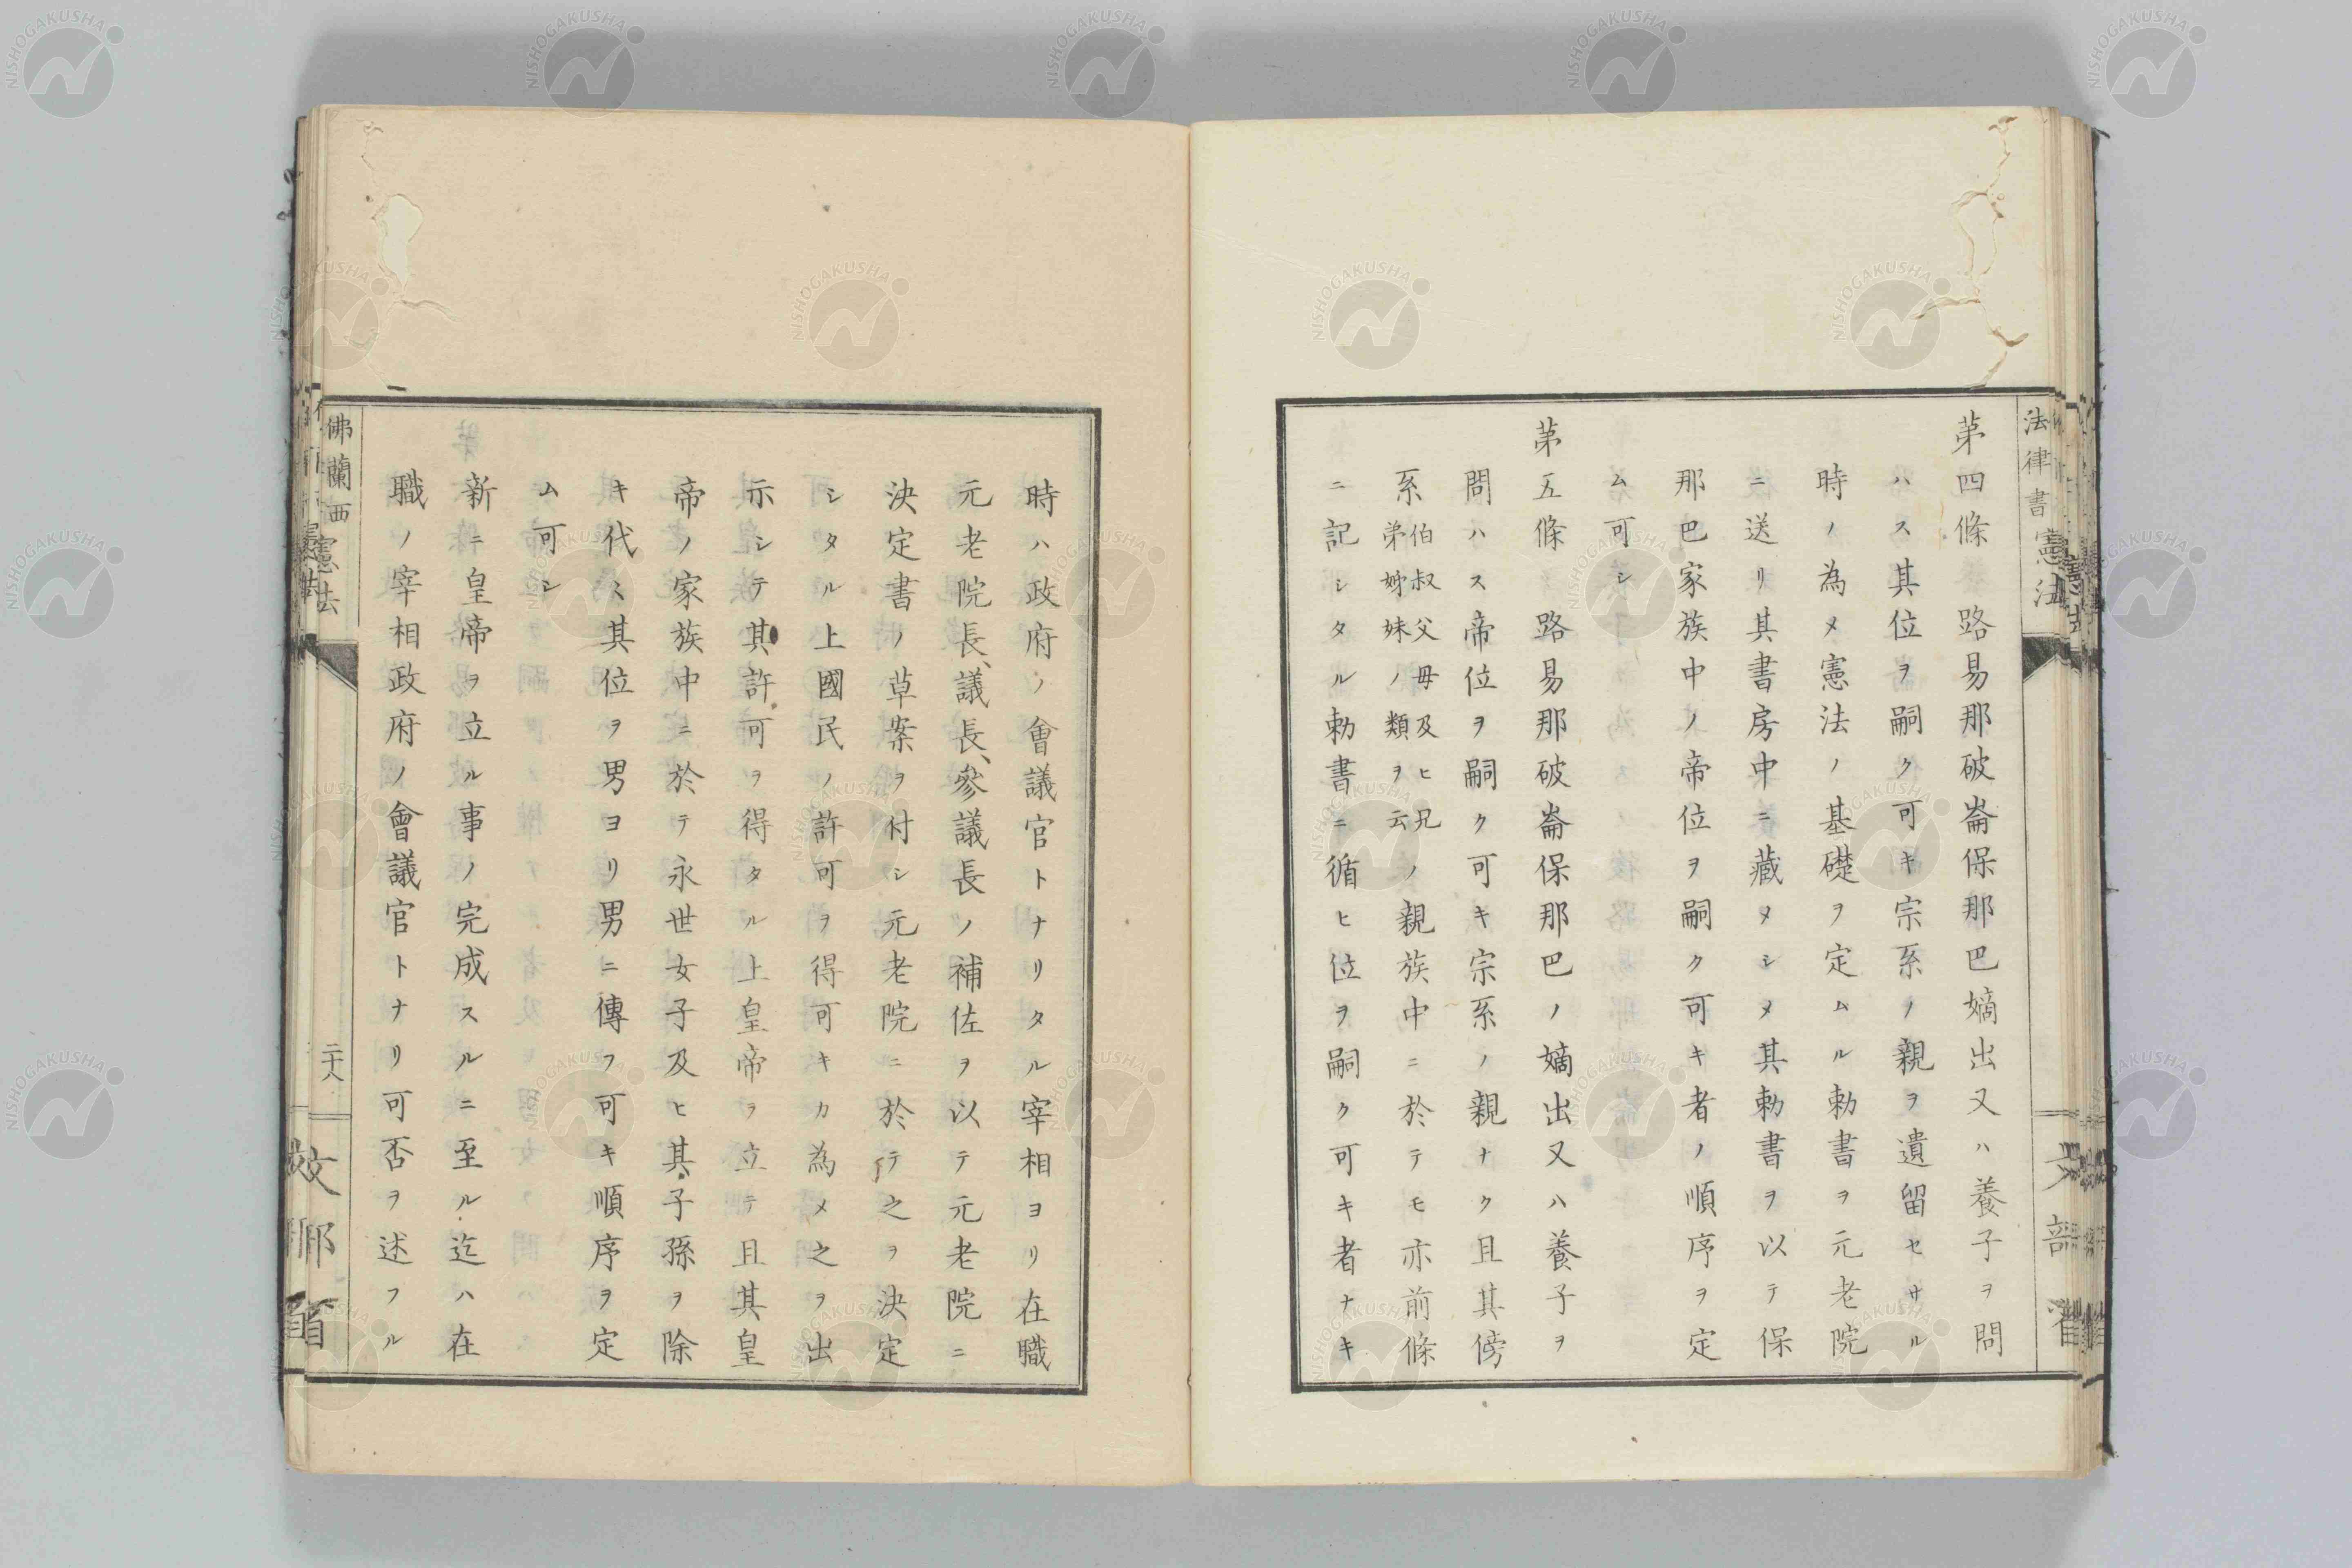 第四條 路易那破崙保那巴嫡出又ハ養子ヲ問
ハス其位ヲ嗣ク可キ宗系ノ親ヲ遺留セサル
時ノ為メ憲法ノ基礎ヲ定ムル勅書ヲ元老院
ニ送リ其書房中ニ藏メシメ其勅書ヲ以テ保
那巴家族中ノ帝位ヲ嗣ク可キ者ノ順序ヲ定
ム可シ
第五條 路易那破崙保那巴ノ嫡出又ハ養子ヲ
問ハス帝位ヲ嗣ク可キ宗系ノ親ナク且其傍
系伯叔父母及ヒ兄弟姉妹ノ類ヲ云ノ親族中ニ於テモ亦前條
ニ記シタル勅書ニ循ヒ位ヲ嗣ク可キ者ナキ
時ハ政府ノ會議官トナリタル宰相ヨリ在職
元老院長、議長、參議長ノ補佐ヲ以テ元老院ニ
決定書ノ草案ヲ付シ元老院ニ於テ之ヲ決定
シタル上國民ノ許可ヲ得可キカ為メ之ヲ出
示シテ其許可ヲ得タル上皇帝ヲ立テ且其皇
帝ノ家族中ニ於テ永世女子及ヒ其子孫ヲ除
キ代々其位ヲ男ヨリ男ニ傳フ可キ順序ヲ定
ム可シ
新ニ皇帝ヲ立ル事ノ完成スルニ至ル迄ハ在
職ノ宰相政府ノ會議官トナリ可否ヲ述フル
法律書 憲法
佛蘭西憲法
二十八
NISHOGAKUSHA